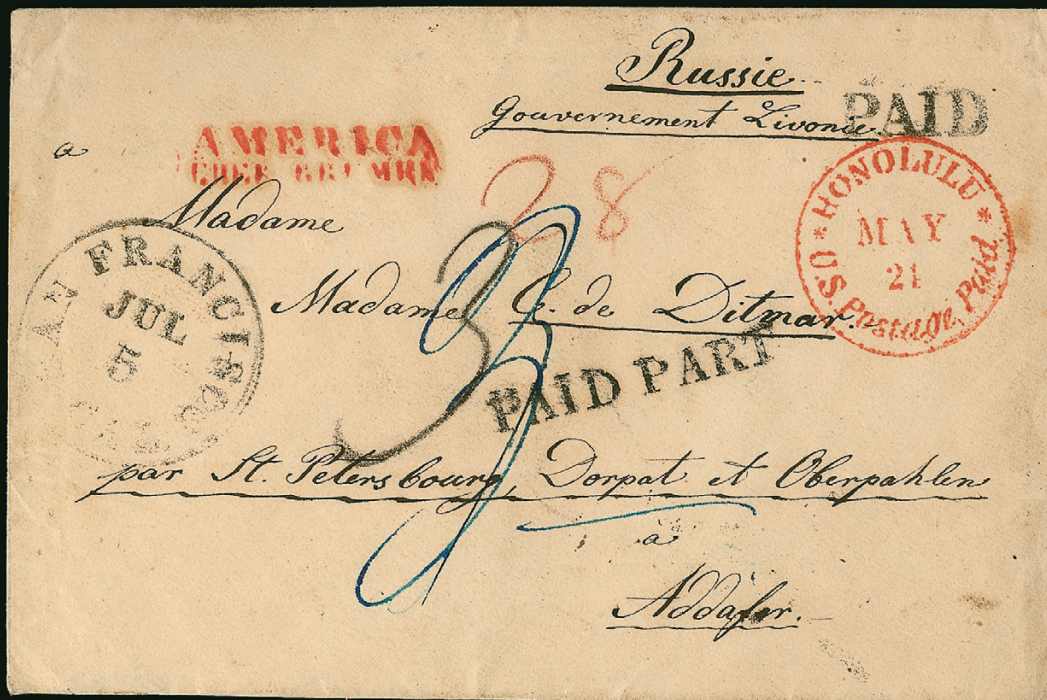 Russie
Gouvernement Livonie
PAID
AMERICA
ÜBER BREMEN
a
28
Madame
HONOLULU
MAY
21
U.S. Postage Paid.
SAN FRANCISCO
JUL
5
CAL.
3
Madame C. de Ditmar.
PAID PART
par St. Petersbourg, Dorpat et Oberpahlen
a
Addafer.